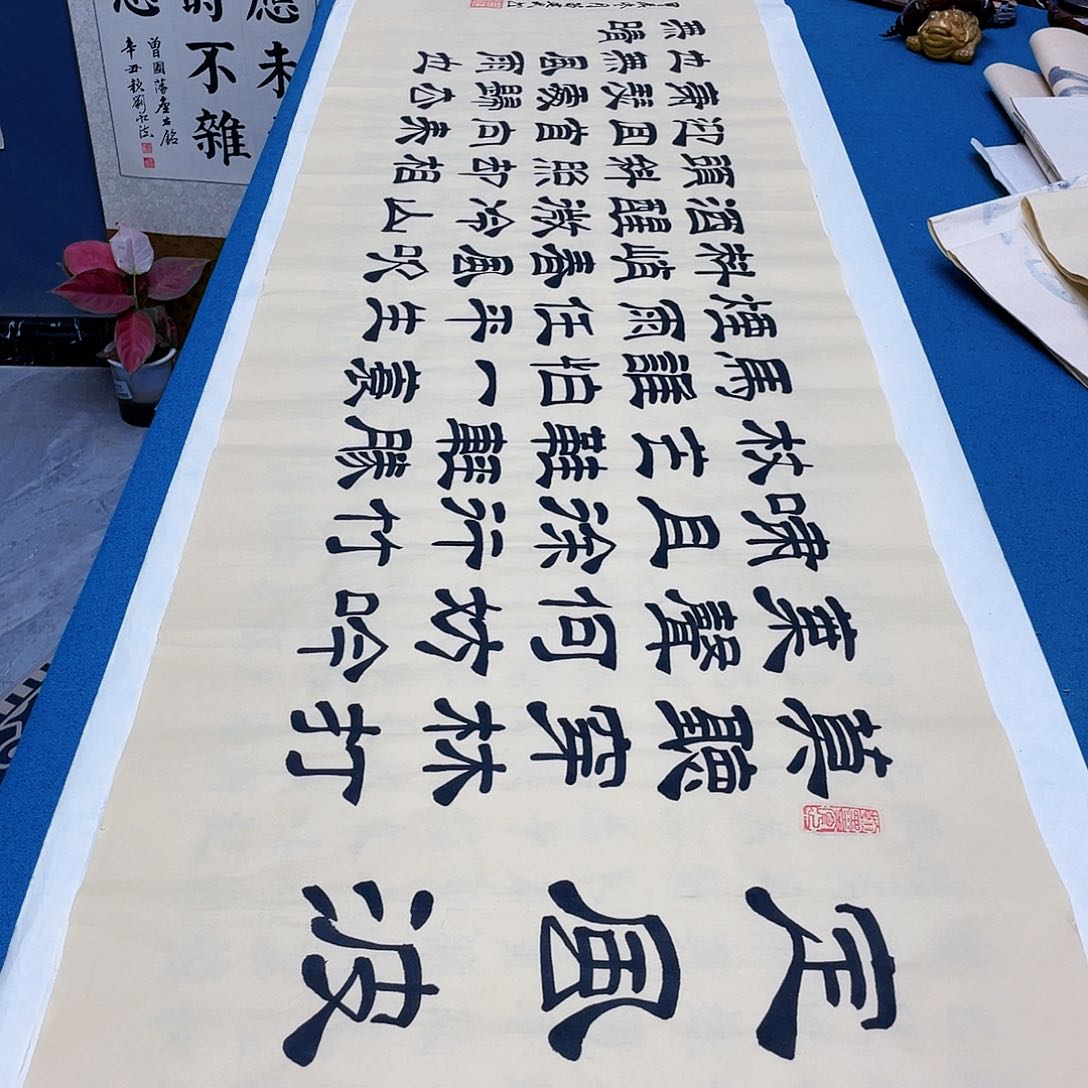 定風波
莫聽穿林打
葉聲何妨吟
嘯且徐行竹
杖芒鞋輕勝
馬誰怕一蓑
煙雨任平生
料峭春風吹
酒醒微冷山
頭斜照却相
迎回首向來
蕭瑟處歸去
也無風雨也
無晴
應未
時不雜
恋
曾國藩座右銘
辛丑秋劉